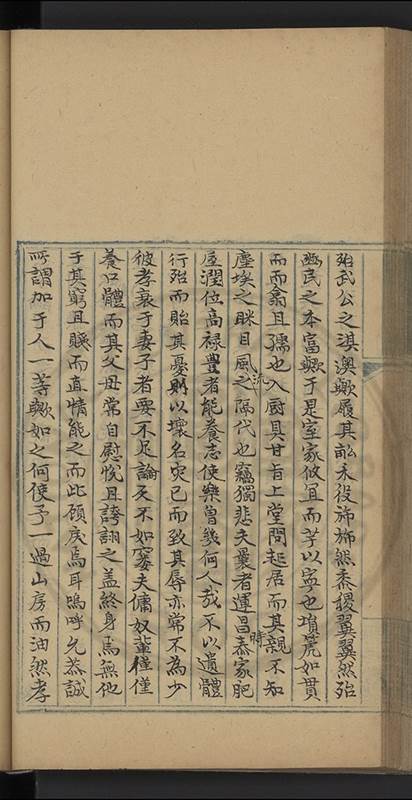 殆武公之淇澳歟履其畝禾役斾斾然黍稷翼翼然殆
豳民之本富歟于是室家攸宜而芋以寧也壎箎如貫
而而翕且孺也入厨具甘旨上堂問起居而其親不知
塵埃之眯目風流之隔代也竊獨悲夫曩者運昌時泰家肥
屋潤位高祿豐者能養志使樂曾幾何人哉不以遺體
行殆而貽其憂則以壞名灾已而致其辱亦常不為少
彼孝衰于妻子者要不足論及不如窶夫傭奴輩僅僅
養口體而其父母常自慰悅且誇詡之盖終身焉無他
于其窮且賤而真情能之而此顧戾焉耳嗚呼允恭誠
所謂加于人一等歟如之何使予一過山房而油然孝